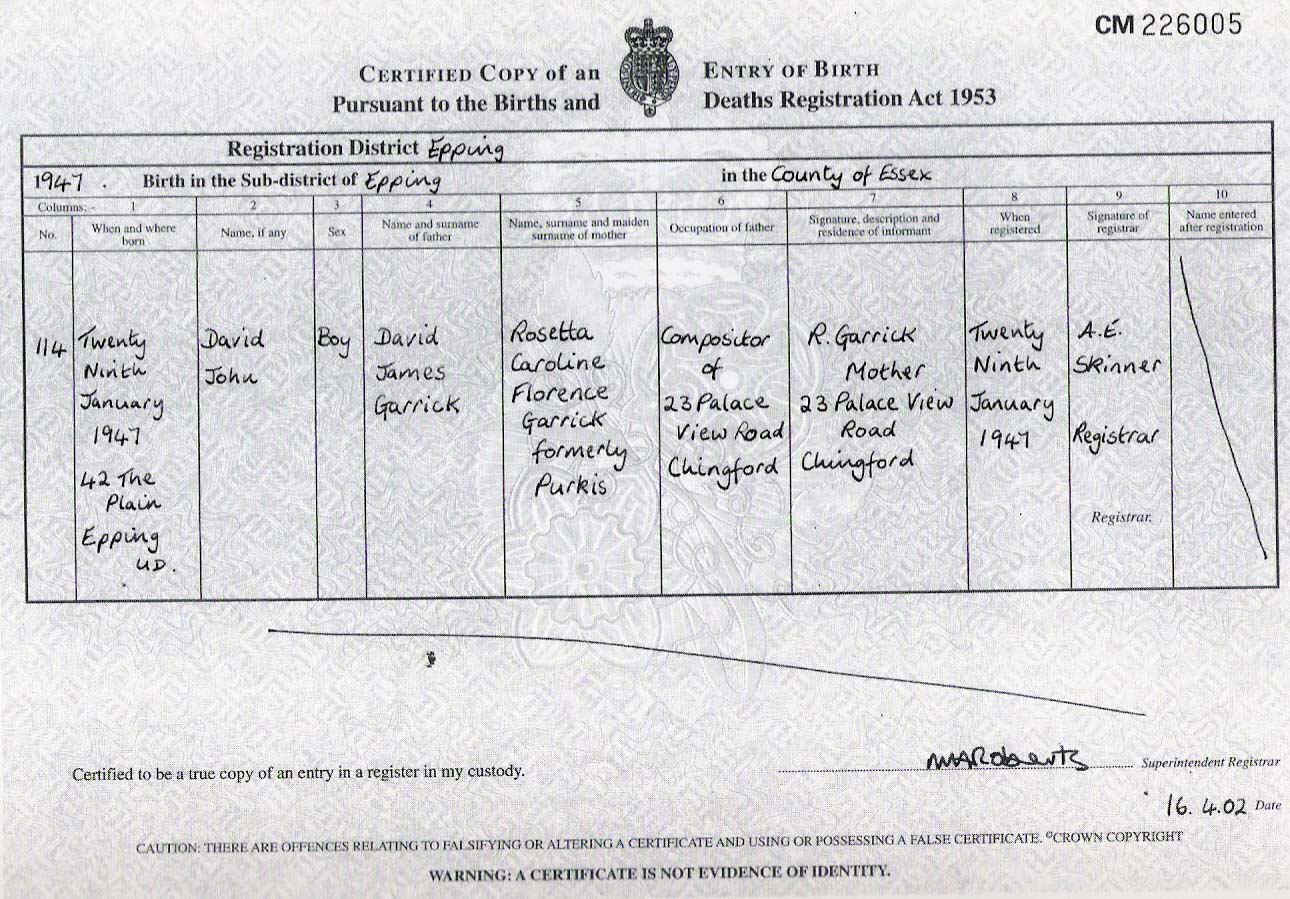 CM 226005
CERTIFIED COPY of an ENTRY OF BIRTH
Pursuant to the Births and Deaths Registration Act 1953
Registration District Epping
1947. Birth in the Sub-district of Epping in the County of Essex
Columns:- 1 2 3 4 5 6 7 8 9 10
No.
When and where
born
Name, if any
Sex
Name and surname
of father
Name, surname and maiden
surname of mother
Occupation of father
Signature, description and
residence of informant
When
registered
Signature of
registrar
Name entered
after registration
114
Twenty
Ninth
January
1947
42 The
Plain
Epping
UD.
David
John
Boy
David
James
Garrick
Rosetta
Caroline
Florence
Garrick
formerly
Purkis
Compositor
of
23 Palace
View Road
Chingford
R. Garrick
Mother
23 Palace View
Road
Chingford
Twenty
Ninth
January
1947
A.E.
Skinner
Registrar
Registrar.
Certified to be a true copy of an entry in a register in my custody.
MARoberts Superintendent Registrar
16. 4.02 Date
CAUTION: THERE ARE OFFENCES RELATING TO FALSIFYING OR ALTERING A CERTIFICATE AND USING OR POSSESSING A FALSE CERTIFICATE. ©CROWN COPYRIGHT
WARNING: A CERTIFICATE IS NOT EVIDENCE OF IDENTITY.